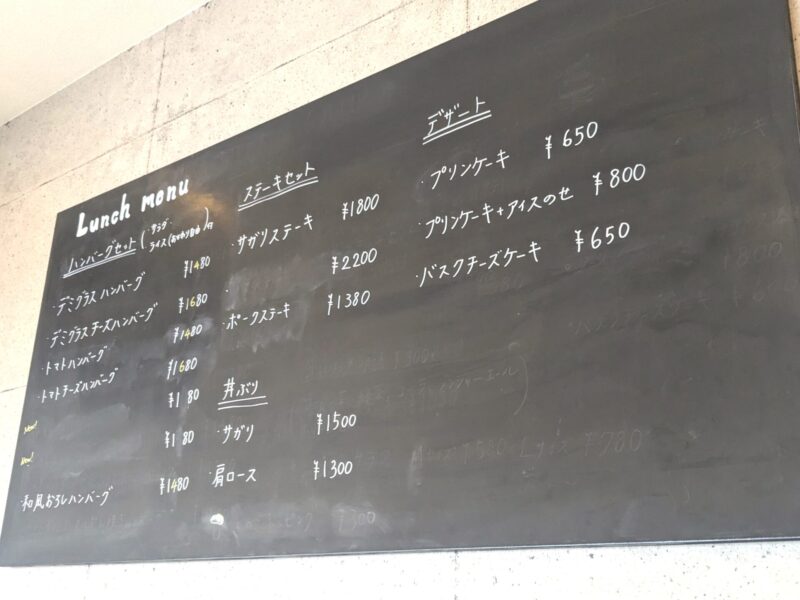 Lunch menu
ハンバーグセット(・サラダ ・ライス(おかわり自由))付
・デミグラスハンバーグ ¥1480
・デミグラスチーズハンバーグ ¥1680
・トマトハンバーグ ¥1480
・トマトチーズハンバーグ ¥1680
New! ¥1 80
New! ¥1 80
・和風おろしハンバーグ ¥1480
ステーキセット
・サガリステーキ ¥1800
・ ¥2200
・ポークステーキ ¥1380
丼ぶり
・サガリ ¥1500
・肩ロース ¥1300
デザート
・プリンケーキ ¥650
・プリンケーキ+アイスのせ ¥800
・バスクチーズケーキ ¥650